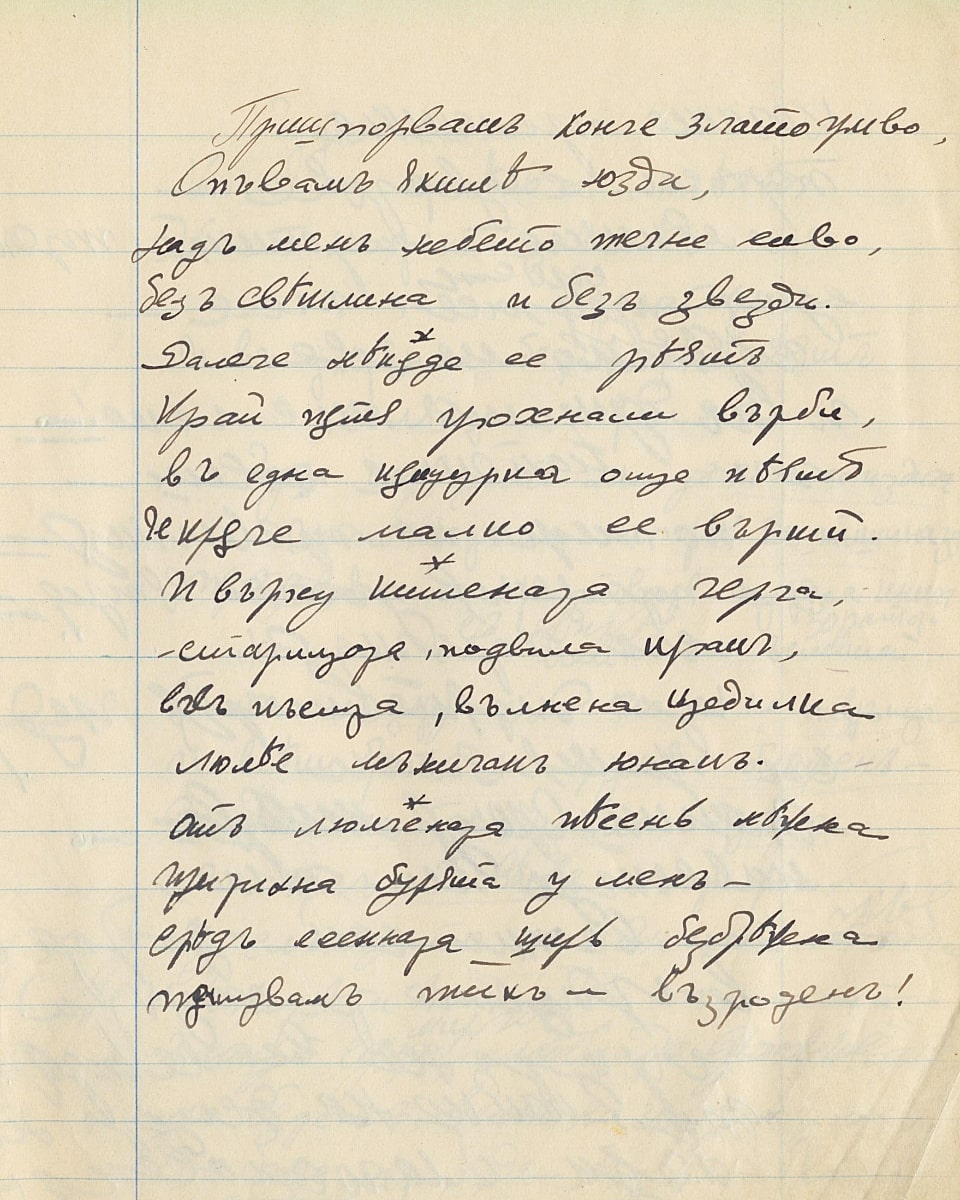 Пришпорвамъ конче златогриво,
Опъвамъ якитѣ юзди,
надъ менъ небето тегне сиво,
безъ свѣтлина и безъ звезди.
Далече нѣкѫде се рѣятъ
Край пѫтя уроненали върби,
въ една кѫщурка още пѣятъ
чекръче малко се върти.
И върху китеназа черга,
-старицаза, подвила кракъ,
въвъ пъстра, вълнена цедилка
люлѣе мъничакъ юнакъ.
Отъ люлчеваза пѣсень нѣжна
притихна бурята у менъ –
срѣдъ есенназа ширь безбрѣжна
пѫтувамъ тихъ – възроденъ!